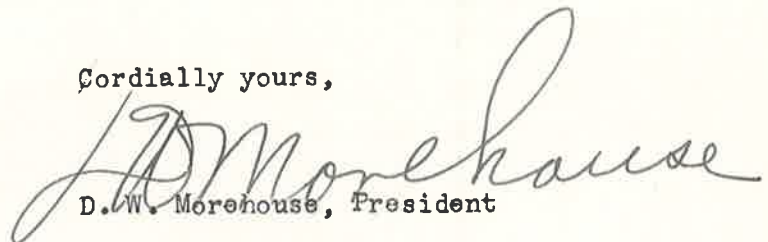 Cordially yours,
DW Morehouse
D. W. Morehouse, President